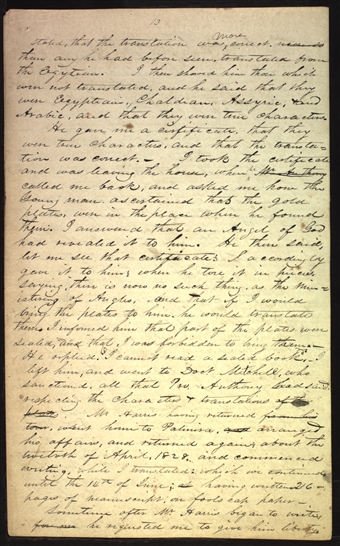 13
more
stated, that the translation was correct. more so
than any he had before seen, translated from
the Egyptian. I then showed him those which
were not translated, and he said that they
were Egyptian, Chaldean, Assyric, and
Arabic, and that they were true characters.
He gave me a certificate, that they
were true characters, and that the transla-
tion was correct. I took the certificate
and was leaving the house, when Mr Anthony
called me back, and asked me how the
young man ascertained that the gold
plates, were in the place where he found
them. I answered that an Angel of God
had revealed it to him. He then said,
let me see that certificate: I accordingly
gave it to him; when he tore it in pieces,
saying, there is now no such thing as the min-
istering of Angles. and that if I would
bring the plates to him. he would translate
them. I informed him that part of the plates were
sealed, and that I was forbidden to bring them.
He replied I cannot read a sealed book. I
left him, and went to Doct Mitchill, who
sanctioned all that Pro. Anthony had said
respecting the character & translations of the
plates. Mr Harris having returned from his
tour, went home to Palmyra, and arranged
his affairs, and returned again about the
twelvth of April, 1828, and commenced
writing, while I translated; which we continued
until the 14th of June; having written 216
pages of manuscript, on foolscap paper.
Sometime after Mr Harris began to write,
he requested me to give him liberty